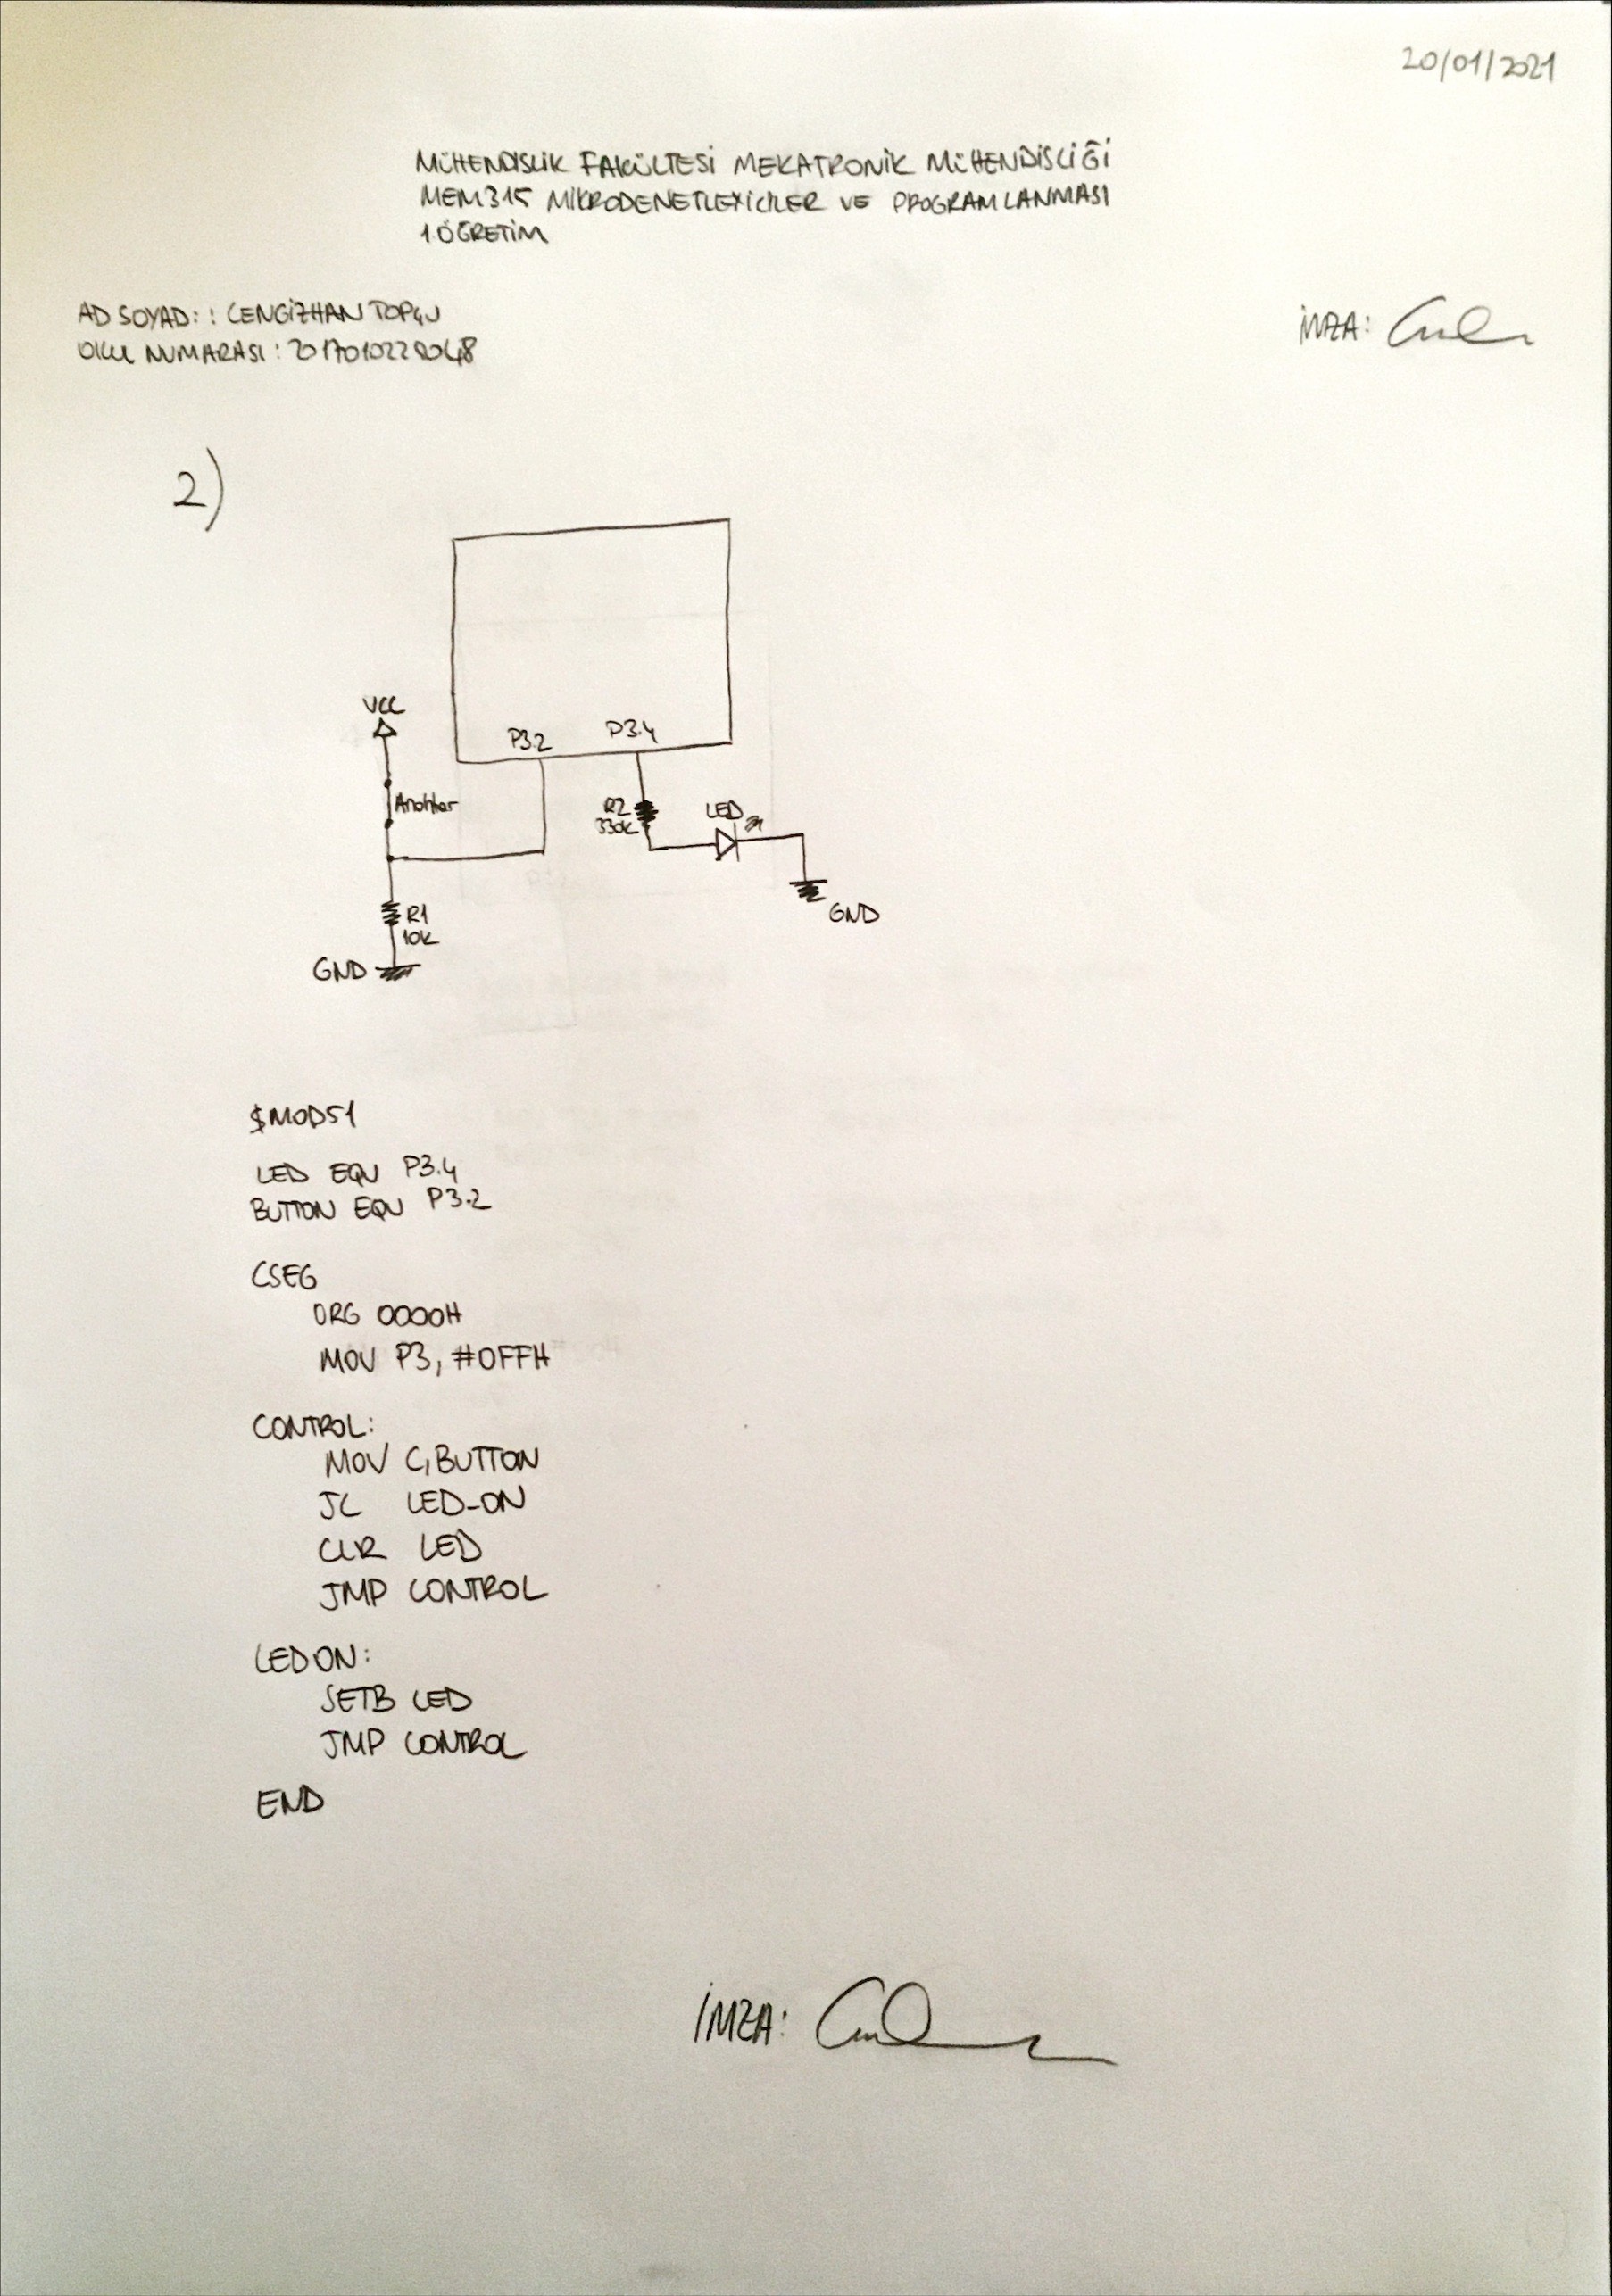 20/01/2021
MÜHENDİSLİK FAKÜLTESİ MEKATRONİK MÜHENDİSLİĞİ
MEM315 MİKRODENETLEYİCİLER VE PROGRAMLANMASI
1.ÖĞRETİM
AD SOYAD: : CENGİZHAN TOPÇU
OKUL NUMARASI :
İMZA:
2)
P3.2 P3.4
VCC
Anahtar
R2
330K
LED
GND
R1
10K
GND
$MOD51
LED EQU P3.4
BUTTON EQU P3.2
CSEG
ORG 0000H
MOV P3, #0FFH
CONTROL:
MOV C,BUTTON
JC LED-ON
CLR LED
JMP CONTROL
LEDON:
SETB LED
JMP CONTROL
END
İMZA: